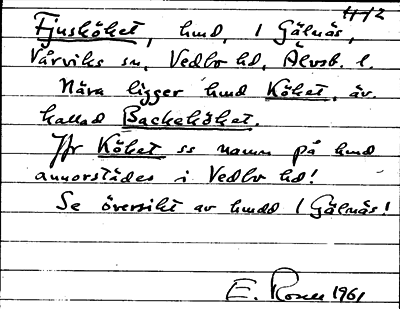 4112
Fjusköket, hmd, / Gälnäs,
Vårviks sn, Vedbo hd, Älvsb. l.
Nära ligger hmd Köket, äv.
kallad Backeköket.
Jfr Köket ss namn på hmd
annorstädes i Vedbo hd!
Se översikt av hmdd / Gälnäs!
E. Rosen 1961